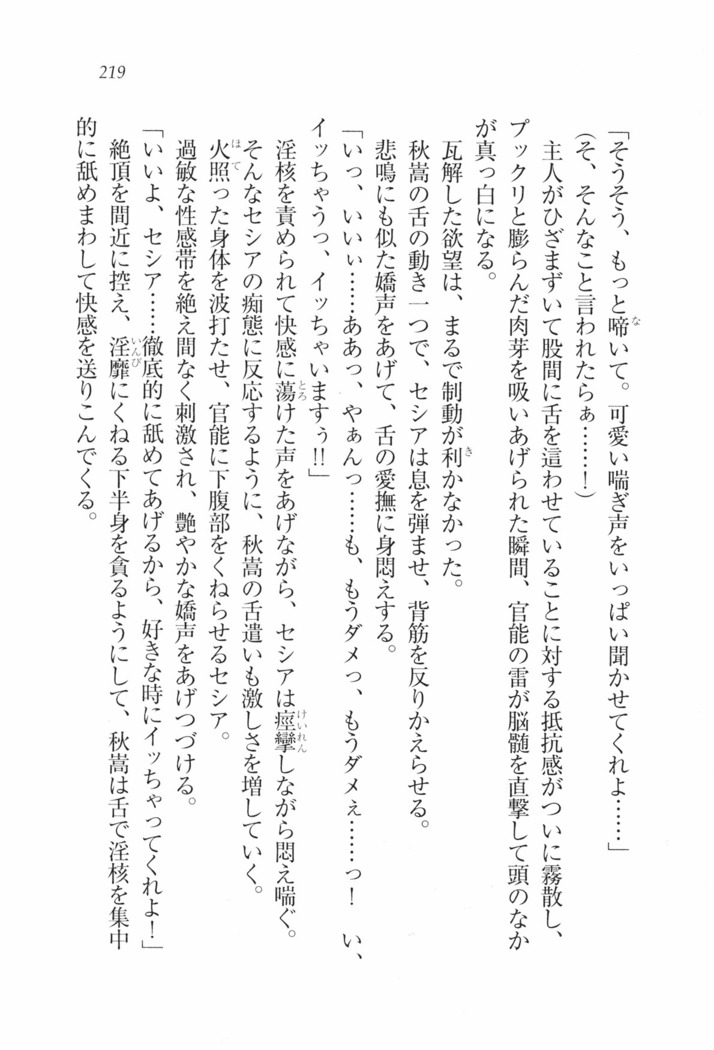 219
「そうそう、もっと啼いて。可愛い喘ぎ声をいっぱい聞かせてくれよ……」
（そ、そんなこと言われたらぁ……！）
主人がひざまずいて股間に舌を這わせていることに対する抵抗感がついに霧散し、
プックリと膨らんだ肉芽を吸いあげられた瞬間、官能の雷が脳髄を直撃して頭のなか
が真っ白になる。
瓦解した欲望は、まるで制動が利かなかった。
秋嵩の舌の動き一つで、セシアは息を弾ませ、背筋を反りかえらせる。
悲鳴にも似た嬌声をあげて、舌の愛撫に身悶えする。
「いっ、いいぃ……ああっ、やぁんっ……も、もうダメっ、もうダメぇ……っ！　い、
イッちゃうっ、イッちゃいますぅ!!」
淫核を責められて快感に蕩けた声をあげながら、セシアは痙攣しながら悶え喘ぐ。
そんなセシアの痴態に反応するように、秋嵩の舌遣いも激しさを増していく。
火照った身体を波打たせ、官能に下腹部をくねらせるセシア。
過敏な性感帯を絶え間なく刺激され、艶やかな嬌声をあげつづける。
「いいよ、セシア……徹底的に舐めてあげるから、好きな時にイッちゃってくれよ！」
絶頂を間近に控え、淫靡にくねる下半身を貪るようにして、秋嵩は舌で淫核を集中
的に舐めまわして快感を送りこんでくる。